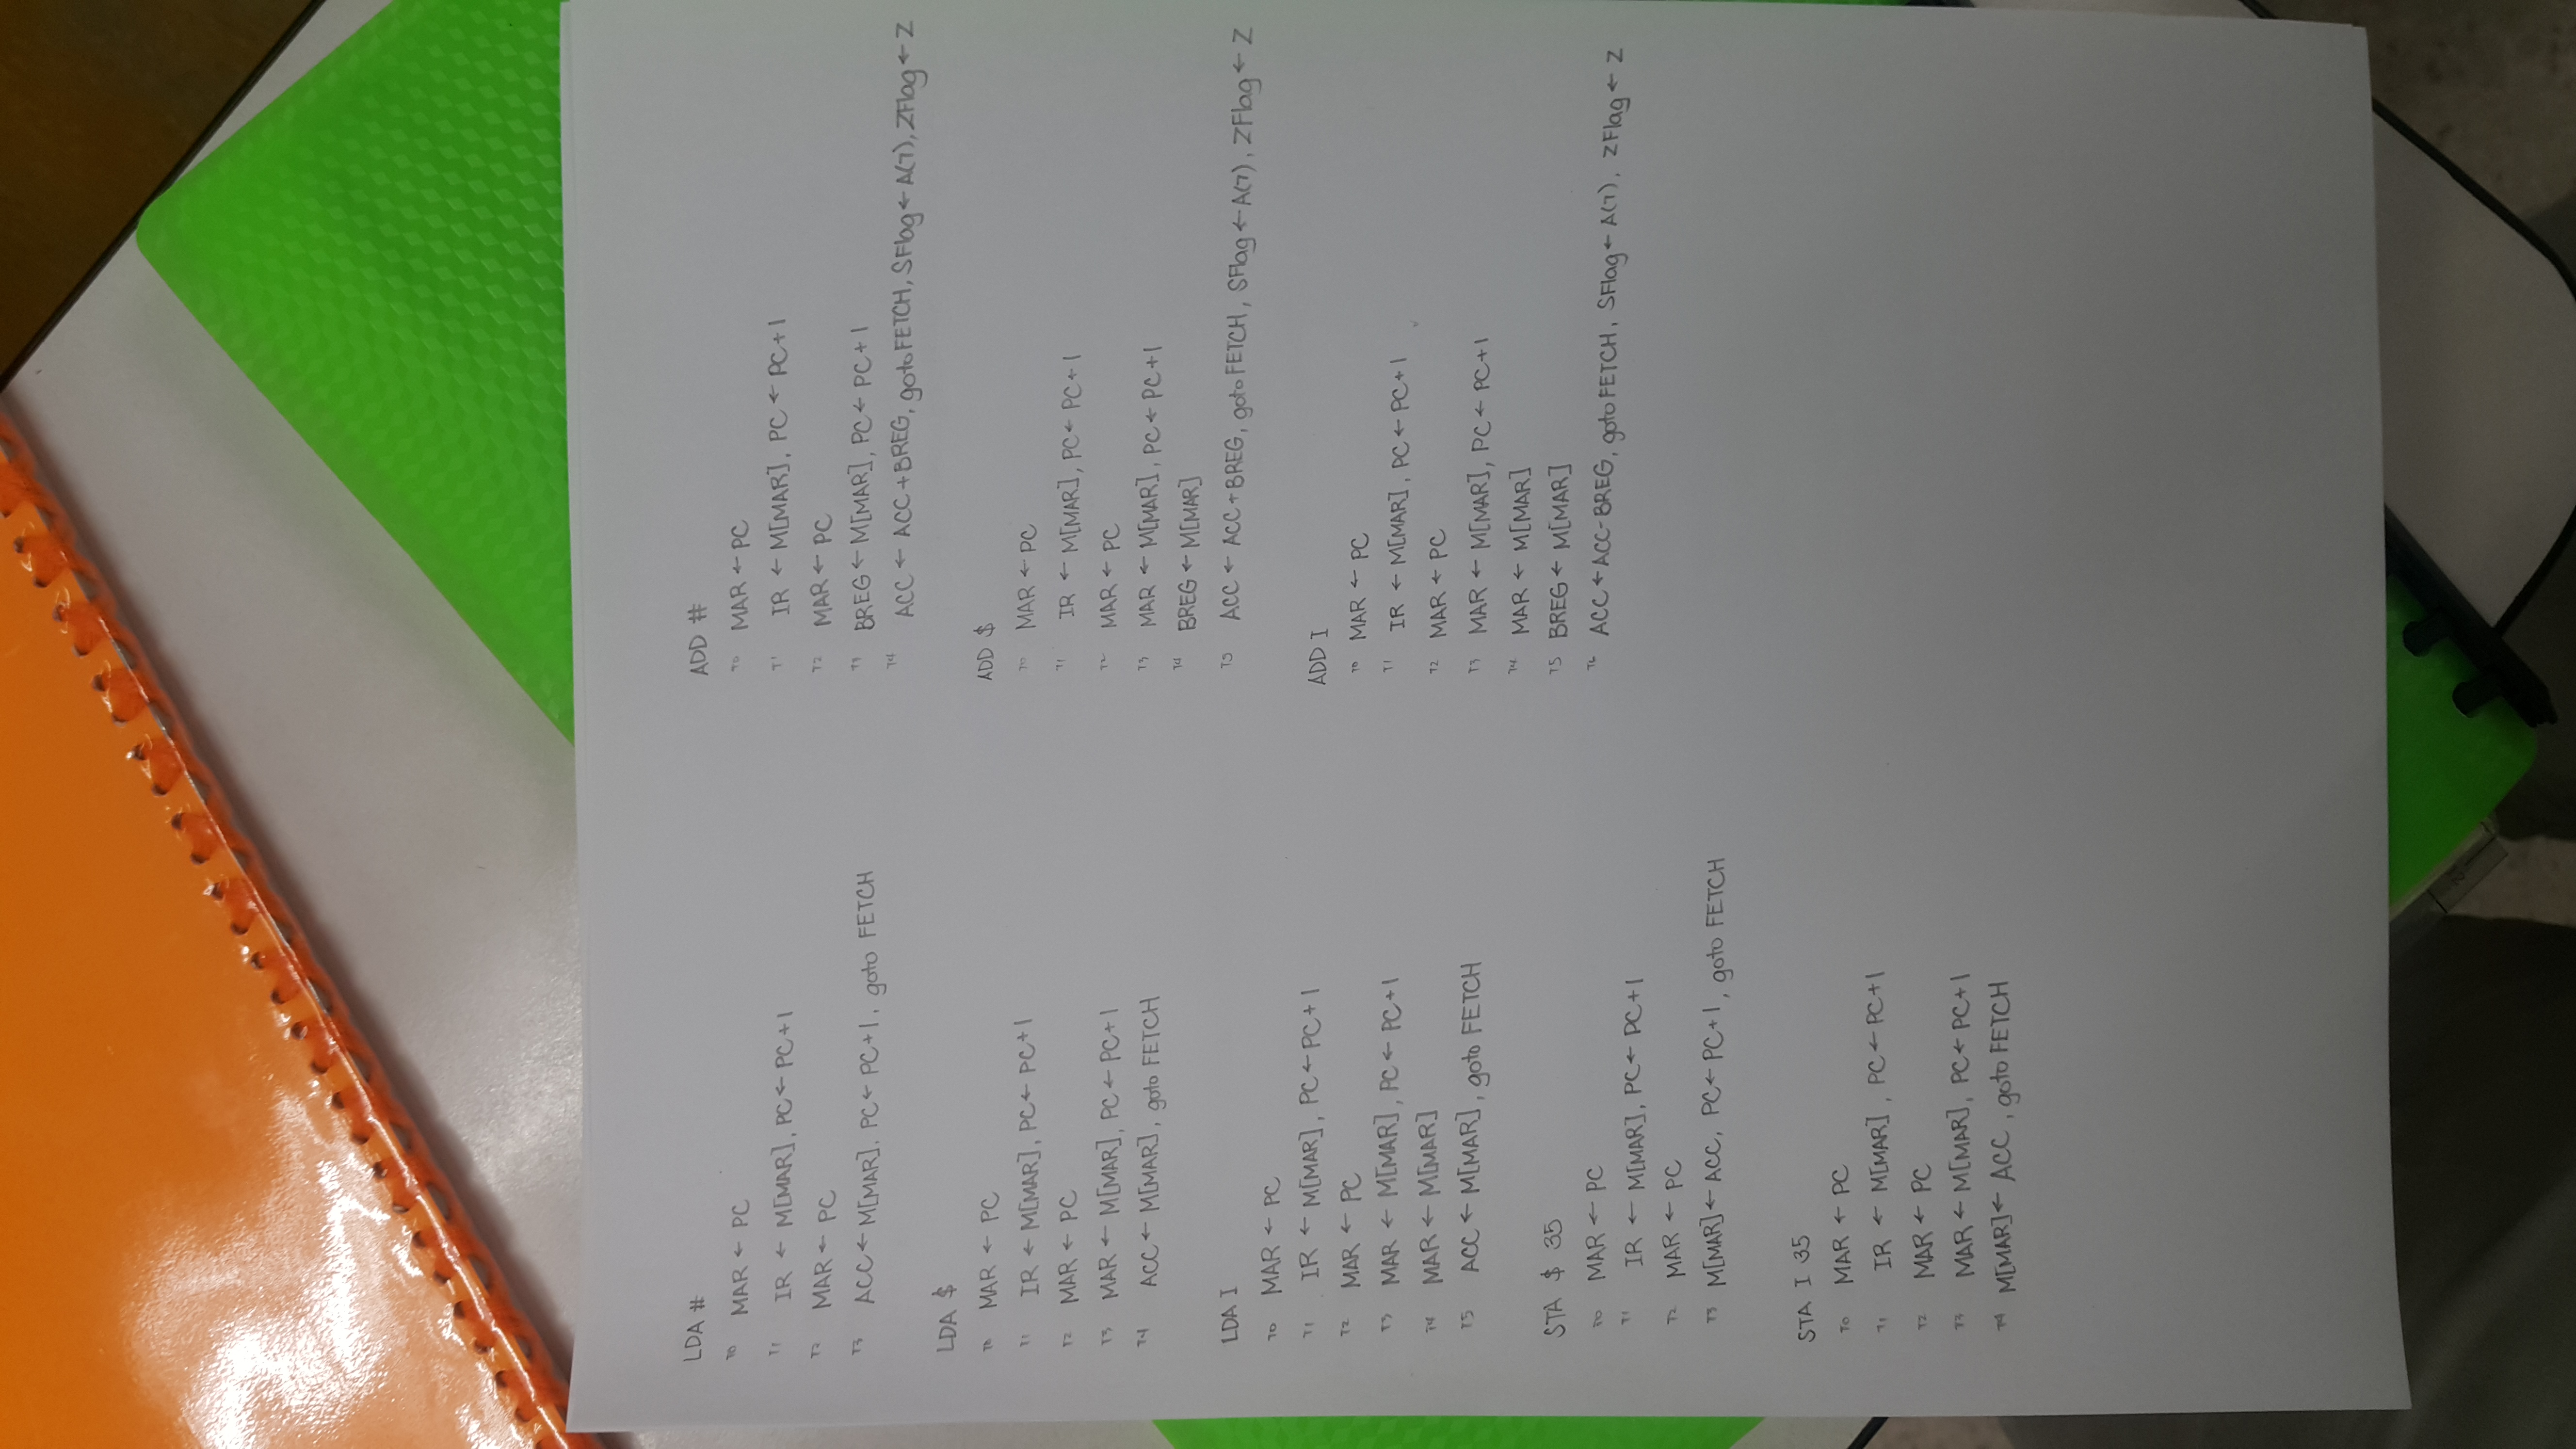 LDA #
T0 MAR ← PC
T1 IR ← M[MAR], PC ← PC+1
T2 MAR ← PC
T3 ACC ← M[MAR], PC ← PC+1, goto FETCH
LDA $
T0 MAR ← PC
T1 IR ← M[MAR], PC ← PC+1
T2 MAR ← PC
T3 MAR ← M[MAR], PC ← PC+1
T4 ACC ← M[MAR], goto FETCH
LDA I
T0 MAR ← PC
T1 IR ← M[MAR], PC ← PC+1
T2 MAR ← PC
T3 MAR ← M[MAR], PC ← PC+1
T4 MAR ← M[MAR]
T5 ACC ← M[MAR], goto FETCH
STA $ 35
T0 MAR ← PC
T1 IR ← M[MAR], PC ← PC+1
T2 MAR ← PC
T3 M[MAR] ← ACC, PC ← PC+1, goto FETCH
STA I 35
T0 MAR ← PC
T1 IR ← M[MAR], PC ← PC+1
T2 MAR ← PC
T3 MAR ← M[MAR], PC ← PC+1
T4 M[MAR] ← ACC, goto FETCH
ADD #
T0 MAR ← PC
T1 IR ← M[MAR], PC ← PC+1
T2 MAR ← PC
T3 BREG ← M[MAR], PC ← PC+1
T4 ACC ← ACC+BREG, goto FETCH, SFlag ← A(7), ZFlag ← Z
ADD $
T0 MAR ← PC
T1 IR ← M[MAR], PC ← PC+1
T2 MAR ← PC
T3 MAR ← M[MAR], PC ← PC+1
T4 BREG ← M[MAR]
T5 ACC ← ACC+BREG, goto FETCH, SFlag ← A(7), ZFlag ← Z
ADD I
T0 MAR ← PC
T1 IR ← M[MAR], PC ← PC+1
T2 MAR ← PC
T3 MAR ← M[MAR], PC ← PC+1
T4 MAR ← M[MAR]
T5 BREG ← M[MAR]
T6 ACC ← ACC-BREG, goto FETCH, SFlag ← A(7), ZFlag ← Z